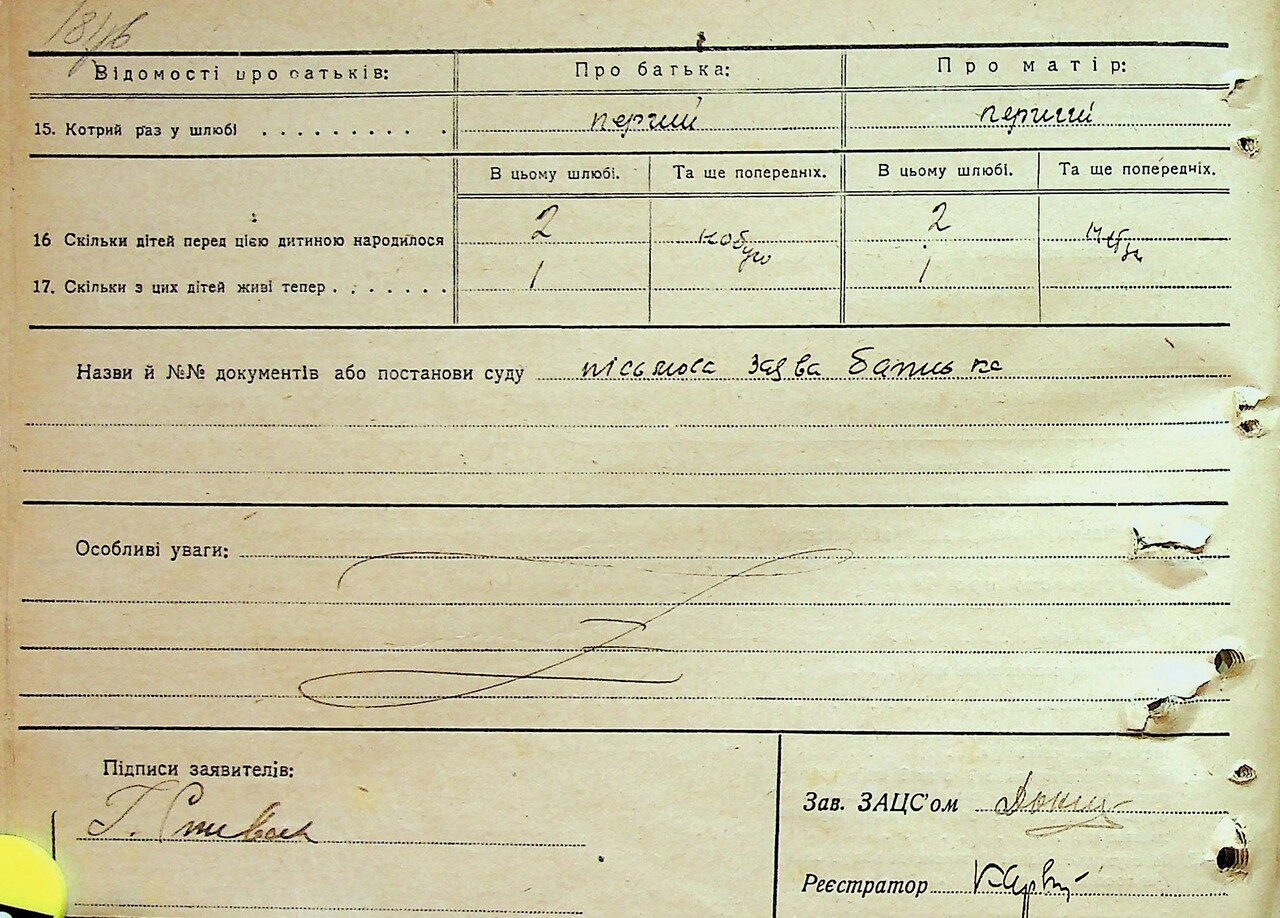 Відомості про батьків: Про батька: Про матір:
15. Котрий раз у шлюбі . . . . . . . . . . перший перший
В цьому шлюбі. Та ще попередніх. В цьому шлюбі. Та ще попередніх.
16 Скільки дітей перед цією дитиною народилося 2 2
17. Скільки з цих дітей живі тепер . . . . . . . 1 1
Назви й №№ документів або постанови суду заява батька
Особливі уваги:
Підписи заявителів:
Зав. ЗАЦС'ом
Г. Співак
Реєстратор